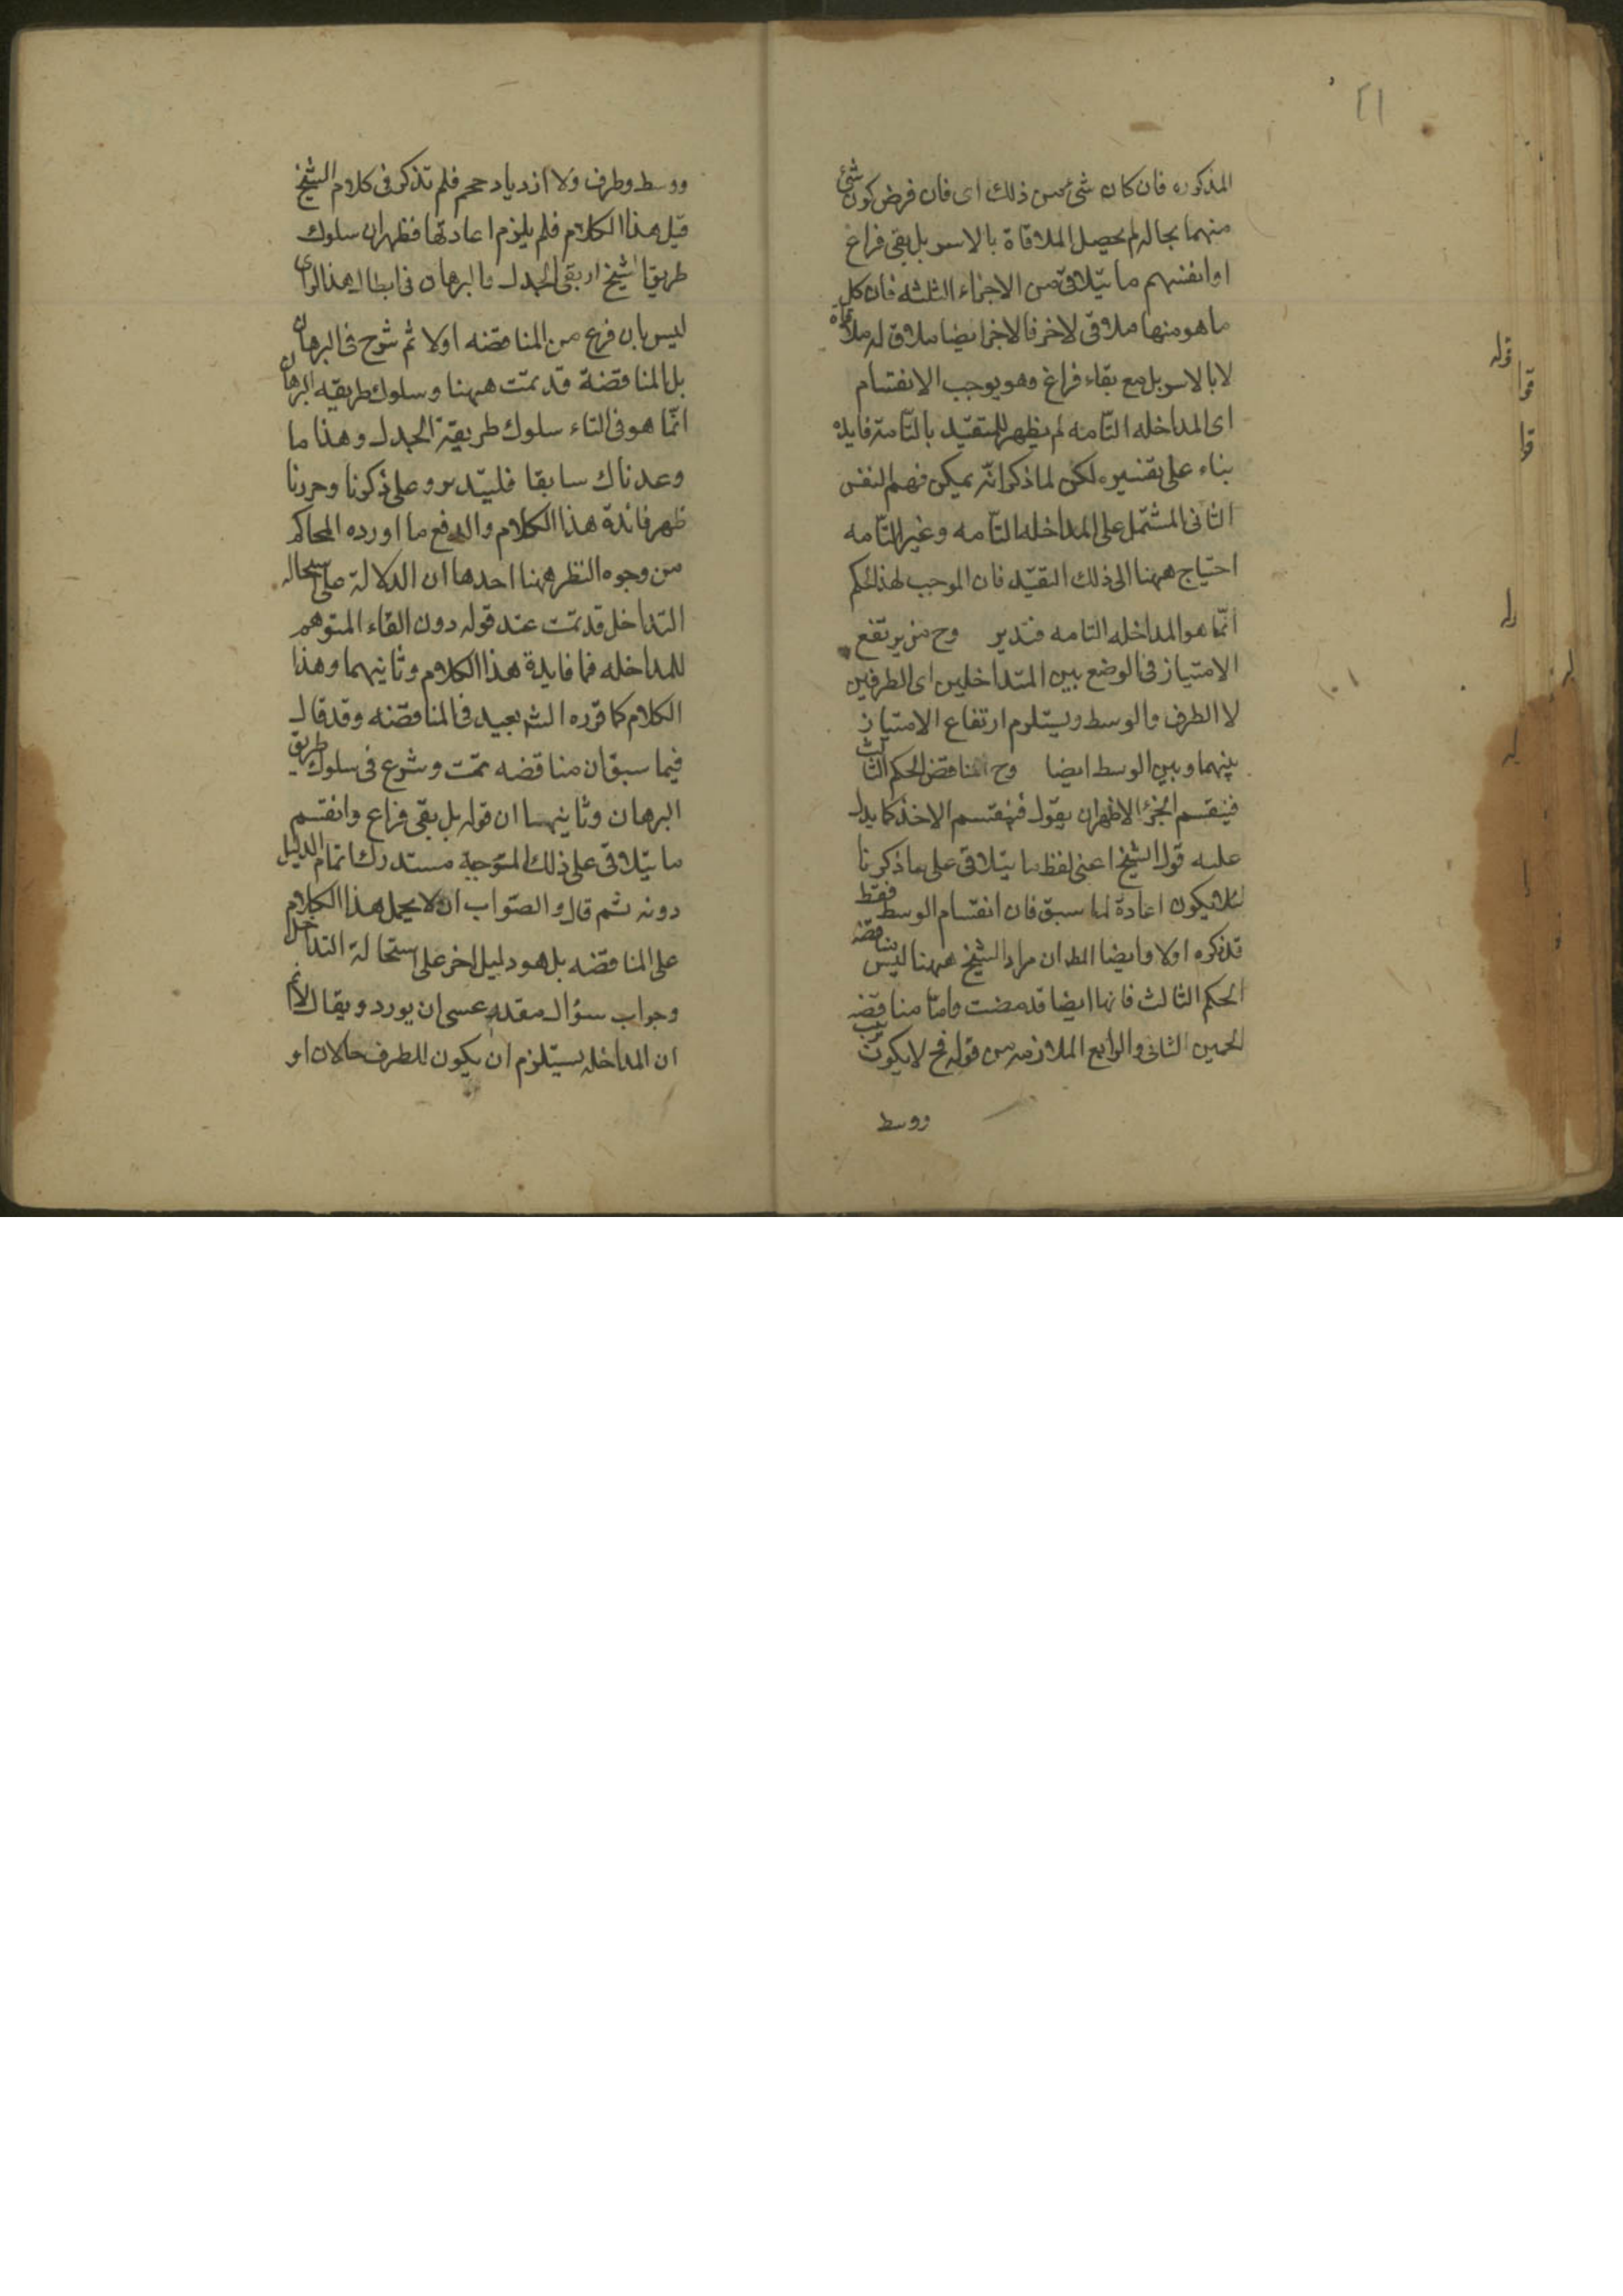 ٢١
المذكوره فان كان شئ من ذلك اى فان فرض كون شئ
منهما بحاله لم يحصل الملاقاة بالاسر بل بقى فراغ
او انقسم ما يتلاقى من الاجزاء الثلثه فان كل
ما هو منها ملاقى لاخر فالاخر ايضا ملاق له ملاقاة
لا بالاسر بل مع بقاء فراغ وهو يوجب الانقسام
اى المداخله التامه لم يظهر للتقيّد بالتّامة فايده
بناء على تفسيره لكن لما ذكر انّه يمكن فهم النفس
الثانى المشتمل على المداخله التّامه وغير التّامه
احتياج ههنا الى ذلك التقيّد فان الموجب لهذا الحكم
انّما هو المداخله التامه فتدبر وح يرتفع
الامتياز فى الوضع بين المتداخلين اى الطرفين
لا الطرف والوسط ويستلزم ارتفاع الامتياز
بينهما وبين الوسط ايضا وح المناقض الحكم الثالث
فينقسم الجزء الاظهر ان يقول فينقسم الاخذ كما يدل
عليه قول الشيخ اعنى لفظ ما يتلاقى على ما ذكرنا
لئلا يكون اعادة لما سبق فان انقسام الوسط فقط
تذكره اولا وايضا الظ ان مراد الشيخ ههنا ليس مناقضه
الحكم الثالث فانها ايضا قد مضت وامّا مناقضه
الحكمين الثانى والرابع الملازمه من قوله فح لا يكون ترتيب
ووسط
ووسط وطرف ولا ازدياد حجم فلم تذكر فى كلام الشيخ
قبل هذا الكلام فلم يلزم اعادتها فظهر ان سلوك
طريق الشيخ طريقى الجدل والبرهان فى ابطال هذا الراى
ليس بان فرع من المناقضه اولا ثم شرح فى البرهان
بل المناقضة قد تمّت ههنا وسلوك طريقه البرهان
انّما هو فى اثناء سلوك طريقة الجدل وهذا ما
وعدناك سابقا فليتدبر وعلى ذكرنا وحررنا
ظهر فائدة هذا الكلام والدفع ما اورده المحاكم
من وجوه النظر ههنا احدها ان الدلالة على استحاله
التداخل قد تمّت عند قوله دون القاء المتوهم
للمداخله فما فايدة هذا الكلام وثانيهما وهذا
الكلام كما قرره الش بعيد فى المناقضه وقد قال
فيما سبق ان مناقضه تمّت وشرع فى سلوك طريق
البرهان وثانيها ان قوله بل بقى فراغ وانقسم
ما يتلاقى على ذلك التوجيه مستدرك اتمام الدليل
دونه ثم قال والصّواب ان لا يحمل هذا الكلام
على المناقضه بل هو دليل اخر على استحالة التداخل
وجواب سؤال مقدر عسى ان يورد ويقال لانم
ان المداخله يستلزم ان يكون للطرف حالان او
قوله